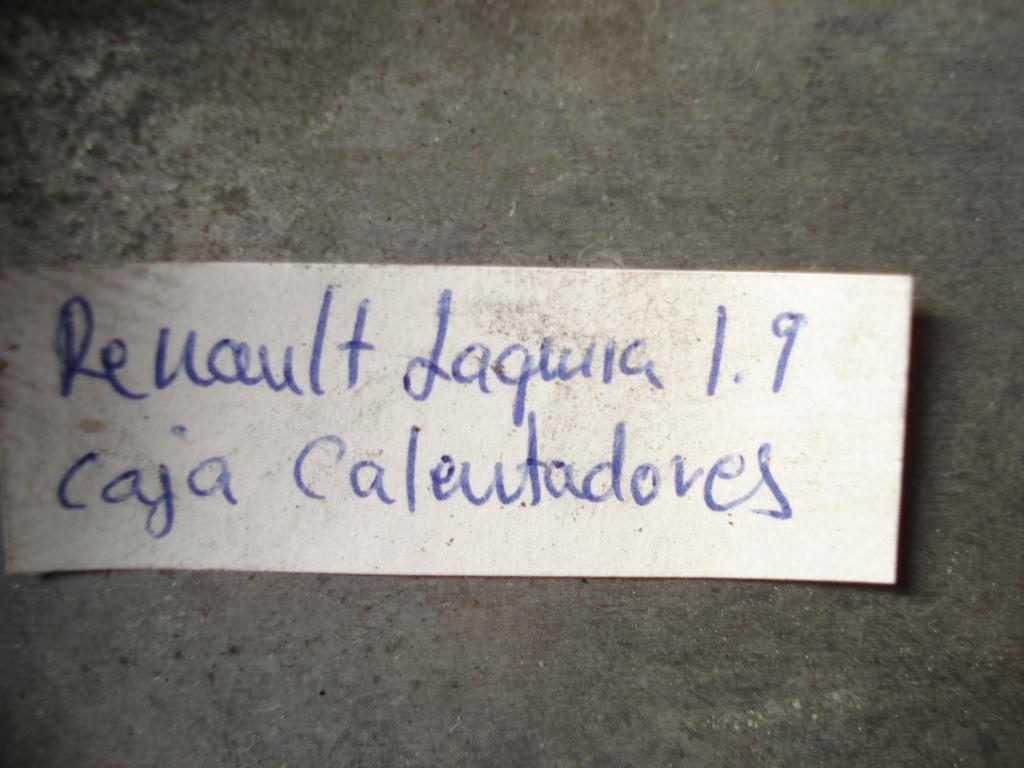 Renault Laguna 1.9
caja Calentadores